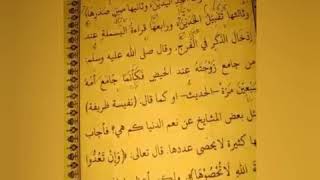 وثالثها تقبيل الخدين، ورابعها قراءة البسملة عند
إدخال الذكر في الفرج. وقال صلى الله عليه وسلم:
من جامع زوجته عند الحيض فكأنما جامع أمه
سبعين مرة -الحديث- او كما قال. (نفيسة ظريفة)
ئل بعض المشايخ عن نعم الدنيا كم هي؟ فأجاب
ها كثيرة لا يحصى عددها. قال تعالى: ﴿وَإِنْ تَعُدُّوا
ةَ اللهِ لَا تُحْصُوهَا﴾